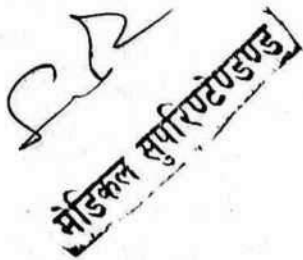 मेडिकल सुपरिण्टेण्डेण्ड